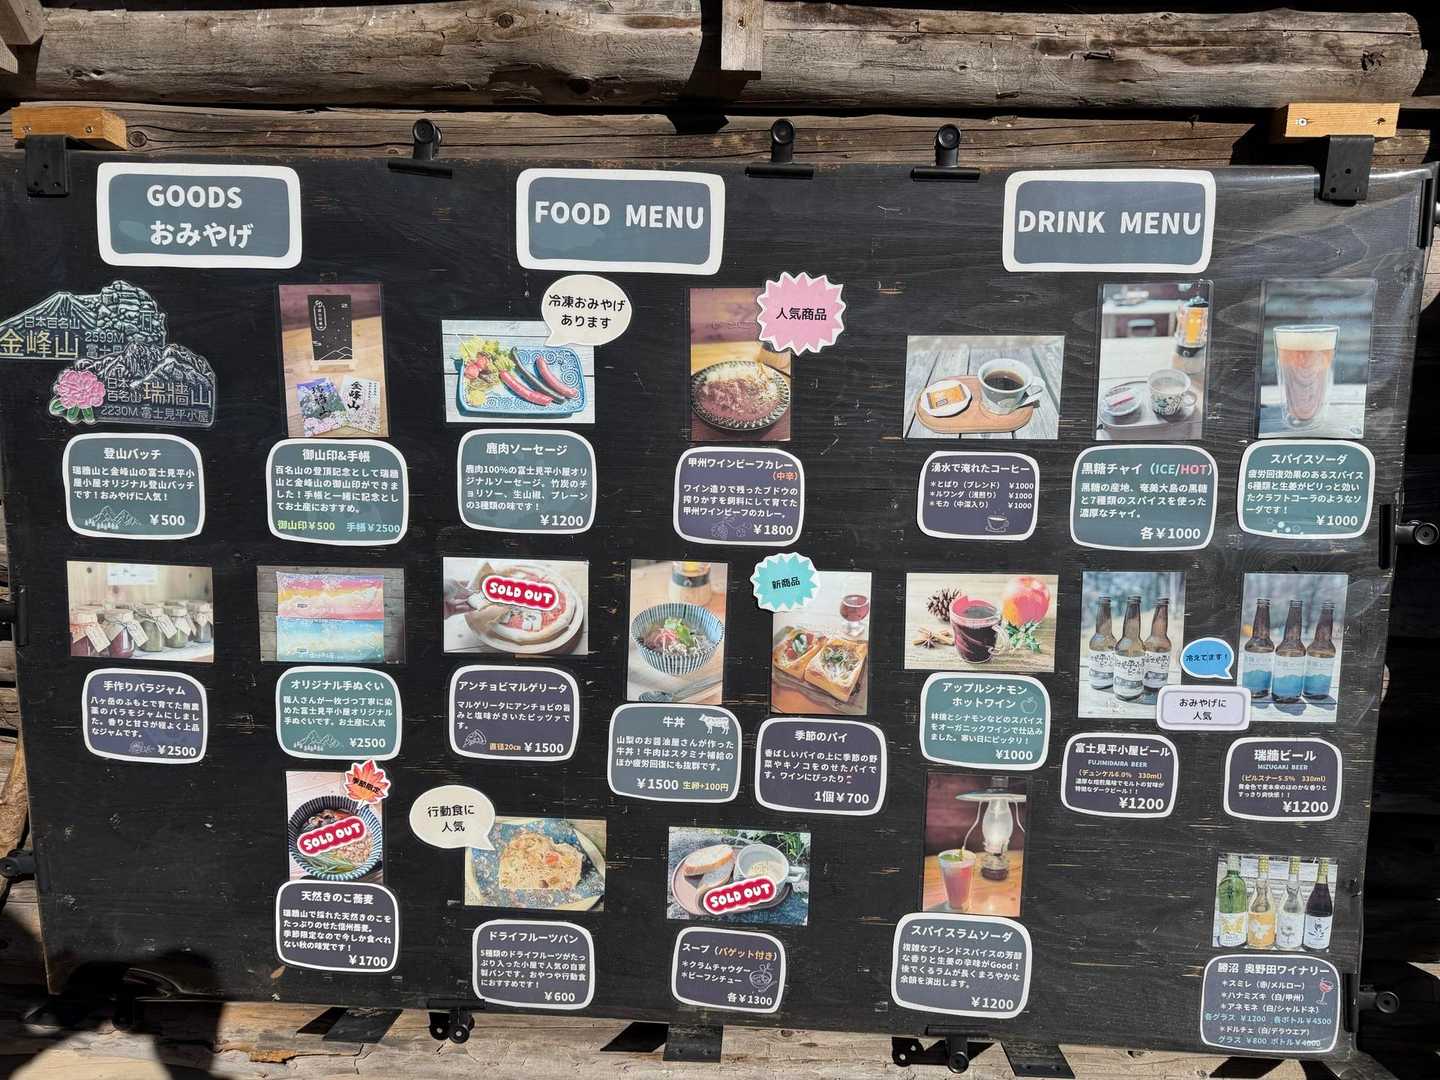 GOODS
おみやげ
日本百名山
金峰山 2599M
富士見平小屋
日本百名山 瑞牆山
2230M 富士見平小屋
登山バッチ
瑞牆山と金峰山の富士見平小
屋小屋オリジナル登山バッチ
です！おみやげに人気！
￥500
金峰山
御山印&手帳
百名山の登頂記念として瑞牆
山と金峰山の御山印ができま
した！手帳と一緒に記念とし
てお土産におすすめ。
御山印￥500 手帳￥2500
手作りバラジャム
八ヶ岳のふもとで育てた無農
薬のバラモジャムにしまし
た。香りと甘さが程よく上品
なジャムです。
￥2500
オリジナル手ぬぐい
職人さんが一枚づつ丁寧に染
めた富士見平小屋オリジナル
手ぬぐいです。お土産に人気
￥2500
FOOD MENU
冷凍おみやげ
あります
鹿肉ソーセージ
鹿肉100%の富士見平小屋オリ
ジナルソーセージ、竹炭のチ
ョリソー、生山椒、プレーン
の3種類の味です！
￥1200
人気商品
甲州ワインビーフカレー
（中辛）
ワイン造りで残ったブドウの
搾りかすを飼料にして育てた
甲州ワインビーフのカレー。
￥1800
SOLD OUT
アンチョビマルゲリータ
マルゲリータにアンチョビの旨
みと塩味がきいたピッツァで
す。
直径20㎝ ￥1500
牛丼
山梨のお醤油屋さんが作った
牛丼！牛肉はスタミナ補給の
ほか疲労回復にも抜群です。
￥1500 生卵+100円
新商品
季節のパイ
香ばしいパイの上に季節の野
菜やキノコをのせたパイで
す。ワインにぴったり
1個￥700
季節限定
SOLD OUT
天然きのこ蕎麦
瑞牆山で採れた天然きのこを
たっぷりのせた信州蕎麦。
季節限定なので今しか食べれ
ない秋の味覚です！
￥1700
行動食に
人気
ドライフルーツパン
5種類のドライフルーツがたっ
ぷり入った小屋で人気の自家
製パンです。おやつや行動食
におすすめです！
￥600
SOLD OUT
スープ（バゲット付き）
＊クラムチャウダー
＊ビーフシチュー
各￥1300
DRINK MENU
湧水で淹れたコーヒー
＊とばり（ブレンド） ￥1000
＊ルワンダ（浅煎り） ￥1000
＊モカ（中深入り） ￥1000
黒糖チャイ（ICE/HOT）
黒糖の産地、奄美大島の黒糖
と7種類のスパイスを使った
濃厚なチャイ。
各￥1000
スパイスソーダ
疲労回復効果のあるスパイス
6種類と生姜がピリっと効い
たクラフトコーラのようなソ
ーダです！
￥1000
アップルシナモン
ホットワイン
林檎とシナモンなどのスパイス
をオーガニックワインで仕込み
ました。寒い日にピッタリ！
￥1000
冷えてます！
おみやげに
人気
富士見平小屋ビール
FUJIMIDAIRA BEER
（デュンケル6.0% 330ml）
濃厚な焙煎風味でモルトの甘味が
特徴なダークビール！！
￥1200
瑞牆ビール
MIZUGAKI BEER
（ピルスナー5.5% 330ml）
黄金色で麦本来のほのかな香りと
すっきり爽快感！！
￥1200
スパイスラムソーダ
複雑なブレンドスパイスの芳醇
な香りと生姜の辛味がGood！
後でくるラムが長くまろやかな
余韻を演出します。
￥1200
勝沼 奥野田ワイナリー
＊スミレ（赤/メルロー）
＊ハナミズキ（白/甲州）
＊アネモネ（白/シャルドネ）
各グラス ￥1200 各ボトル￥4500
＊ドルチェ（白/デラウエア）
グラス ￥800 ボトル￥4000